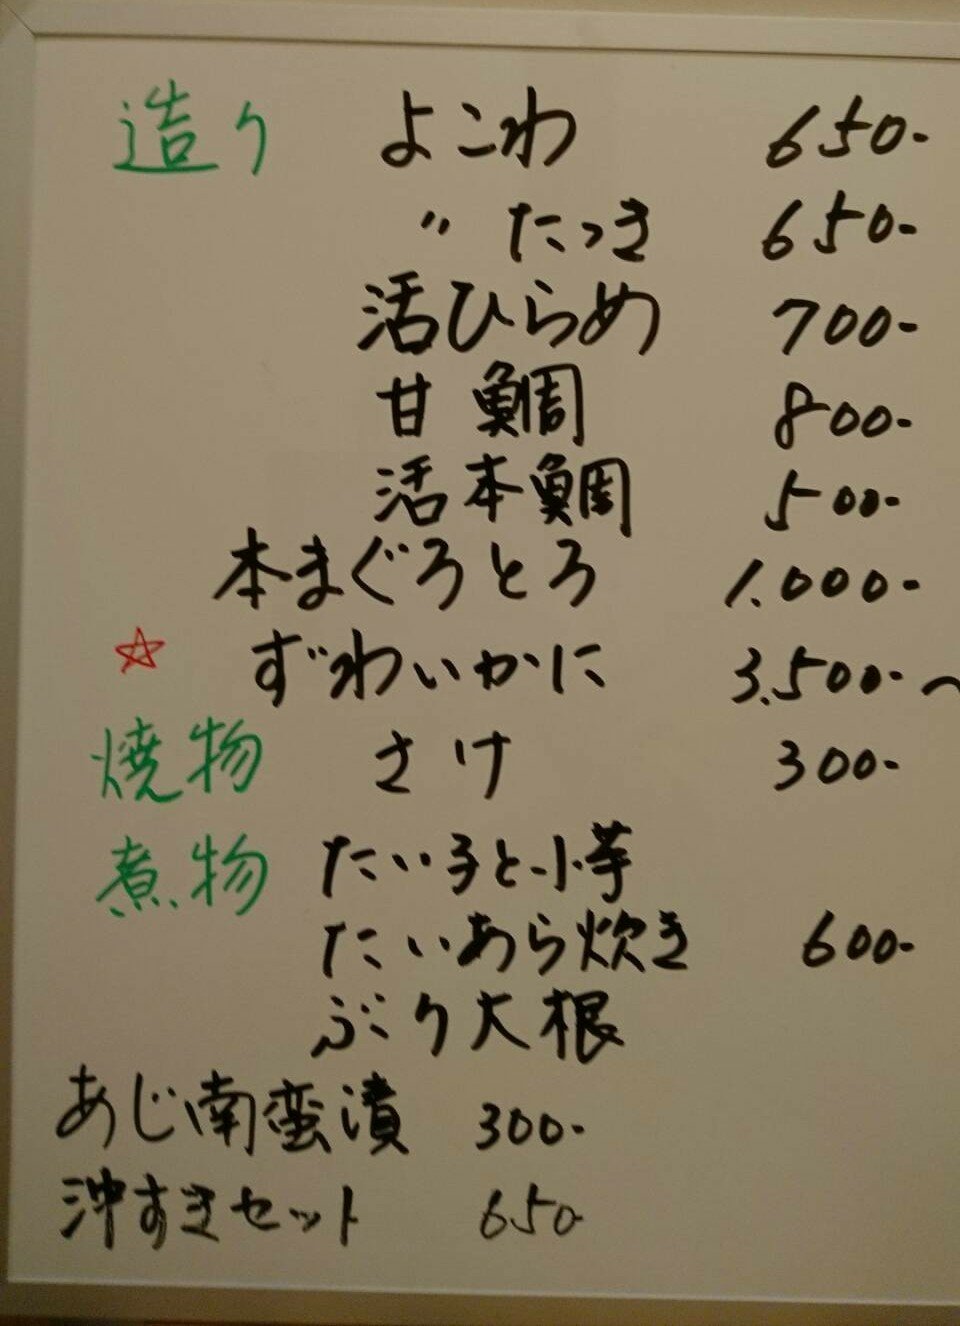 造り よこわ 650-
〃 たっき 650-
活ひらめ 700-
甘鯛 800-
活本鯛 500-
本まぐろとろ 1.000-
☆ ずわいかに 3.500-〜
焼物 さけ 300-
煮物 たい子と小芋
たいあら炊き 600-
ぶり大根
あじ南蛮漬 300-
沖すきセット 650-